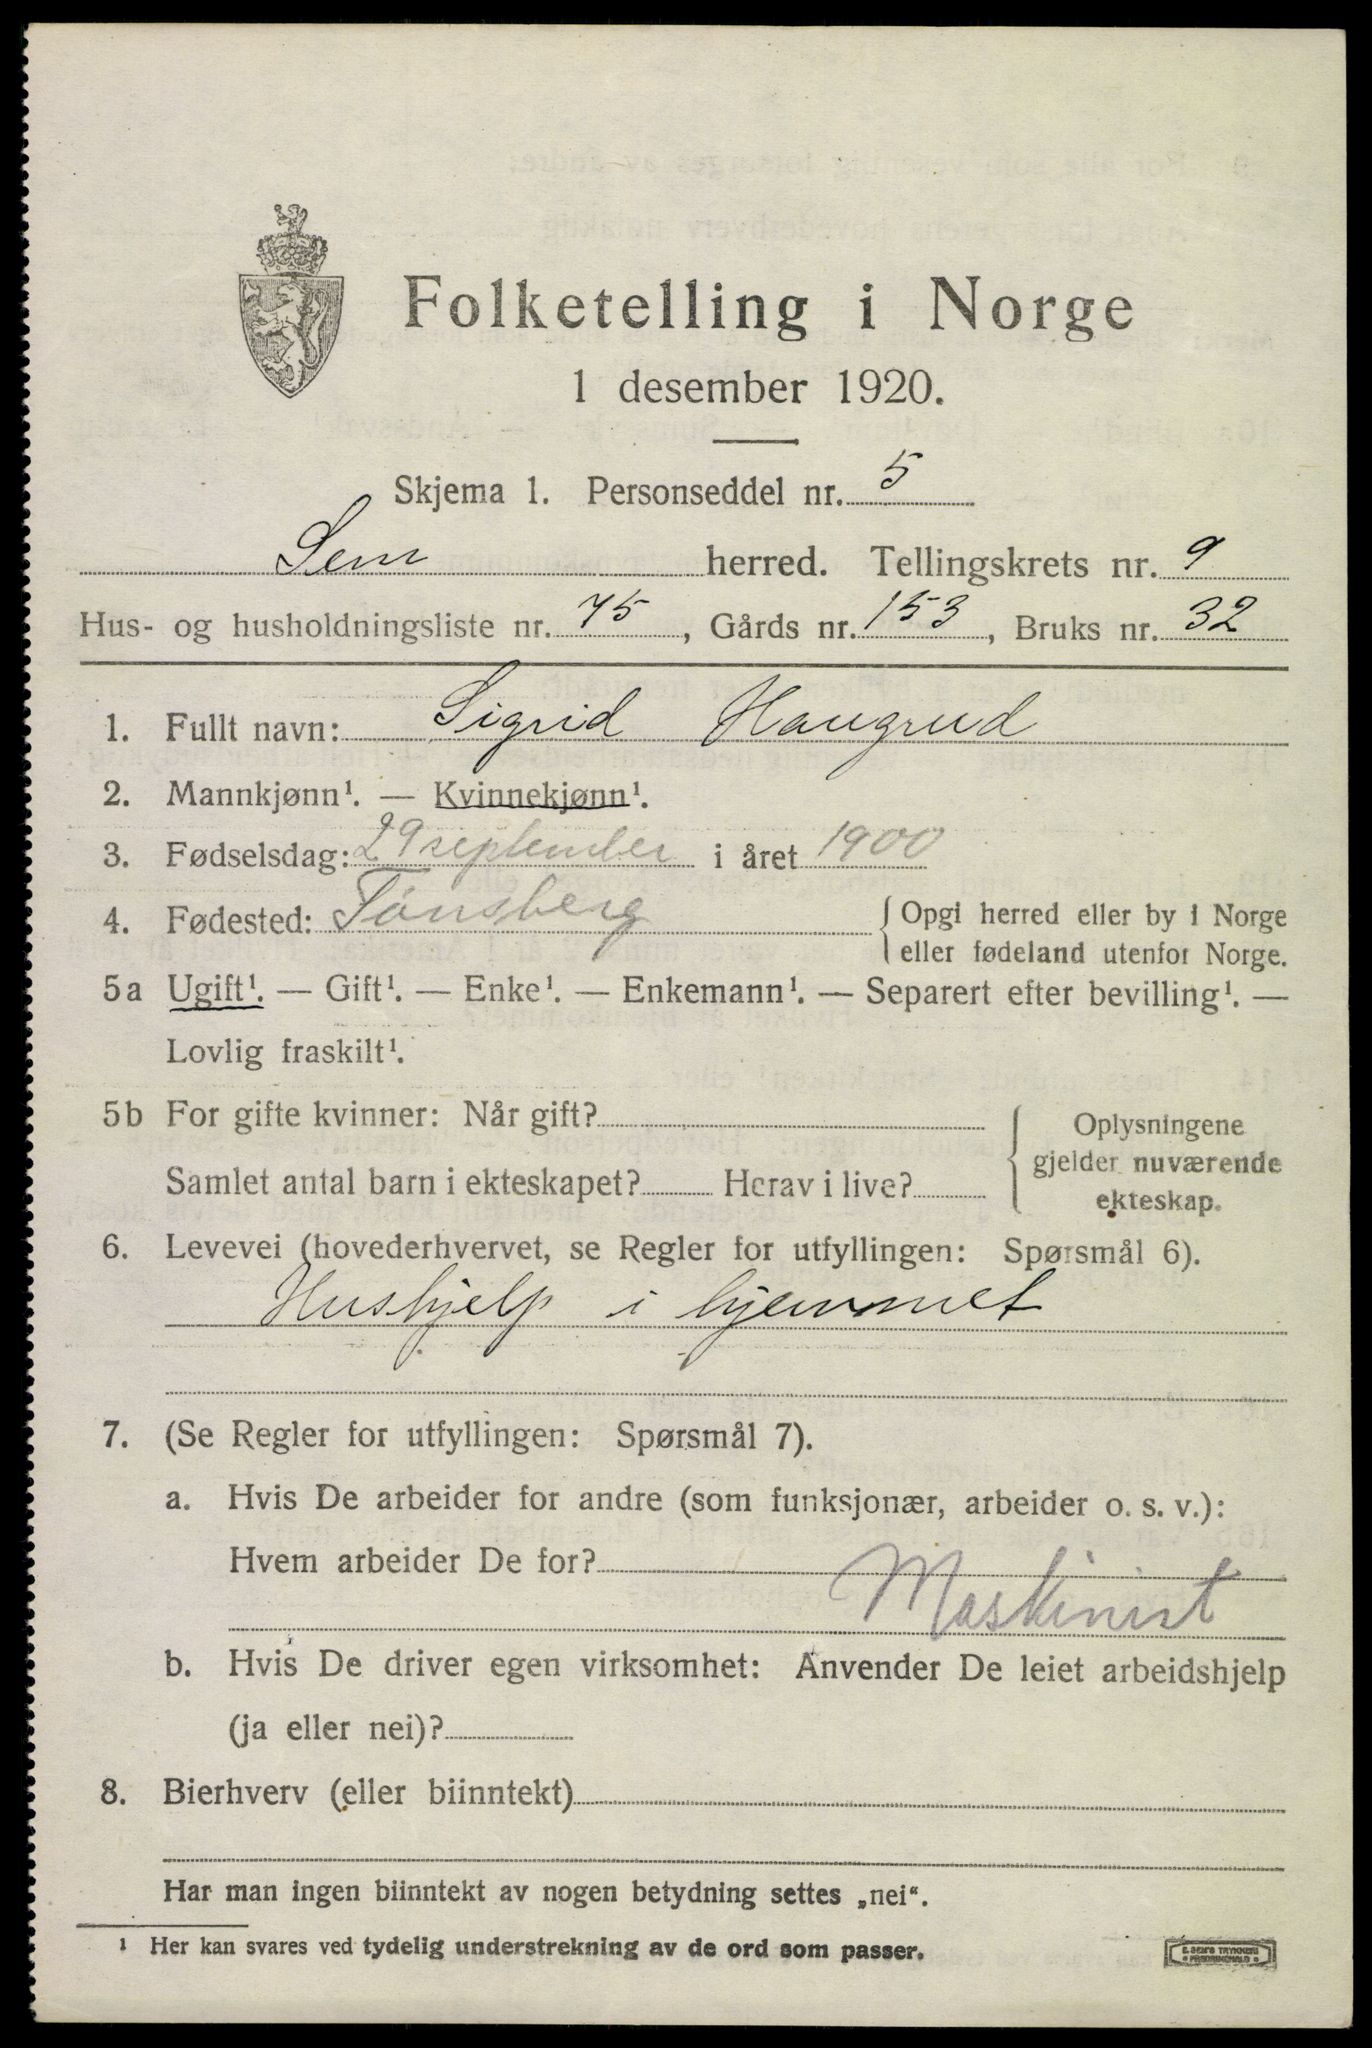 Folketelling i Norge
1 desember 1920.
Skjema 1. Personseddel nr. 5
Sem herred. Tellingskrets nr. 9
Hus- og husholdningsliste nr. 75, Gårds nr. 153, Bruks nr. 32
1. Fullt navn: Sigrid Haugrud
2. Mannkjønn¹. — Kvinnekjønn¹.
3. Fødselsdag: 29 september i året 1900
4. Fødested: Tønsberg { Opgi herred eller by i Norge
eller fødeland utenfor Norge.
5a Ugift¹. — Gift¹. — Enke¹. — Enkemann¹. — Separert efter bevilling¹. —
Lovlig fraskilt¹.
5b For gifte kvinner: Når gift? Oplysningene
gjelder nuværende
Samlet antal barn i ekteskapet? Herav i live? ekteskap.
6. Levevei (hovederhvervet, se Regler for utfyllingen: Spørsmål 6).
Hushjelp i hjemmet
7. (Se Regler for utfyllingen: Spørsmål 7).
a. Hvis De arbeider for andre (som funksjonær, arbeider o. s. v.):
Hvem arbeider De for?
Maskinist
b. Hvis De driver egen virksomhet: Anvender De leiet arbeidshjelp
(ja eller nei)?
8. Bierhverv (eller biinntekt)
Har man ingen biinntekt av nogen betydning settes „nei“.
¹ Her kan svares ved tydelig understrekning av de ord som passer.
E. SEM'S TRYKKERI
FREDRIKSHALD